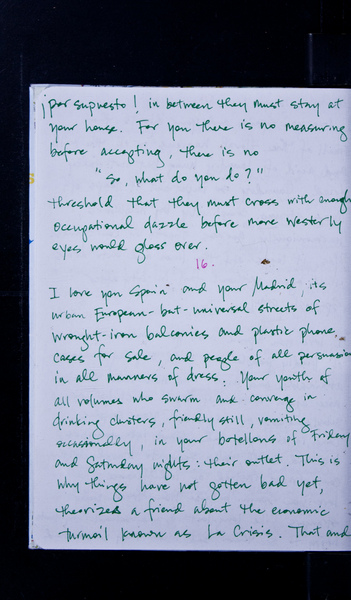 ¡por supuesto! in between they must stay at
your house. For you there is no measuring
before accepting, there is no
"So, what do you do?"
threshold that they must cross with enough
occupational dazzle before more Westerly
eyes would gloss over.
16.
I love you Spain and your Madrid, its
urban European-but-universal streets of
wrought-iron balconies and plastic phone
cases for sale, and people of all persuasion
in all manners of dress. Your youth of
all volumes who swarm and converge in
drinking clusters, friendly still, vomiting
occasionally, in your botellons of Friday
and Saturday nights: their outlet. This is
why things have not gotten bad yet,
theorizes a friend about the economic
turmoil known as La Crisis. That and